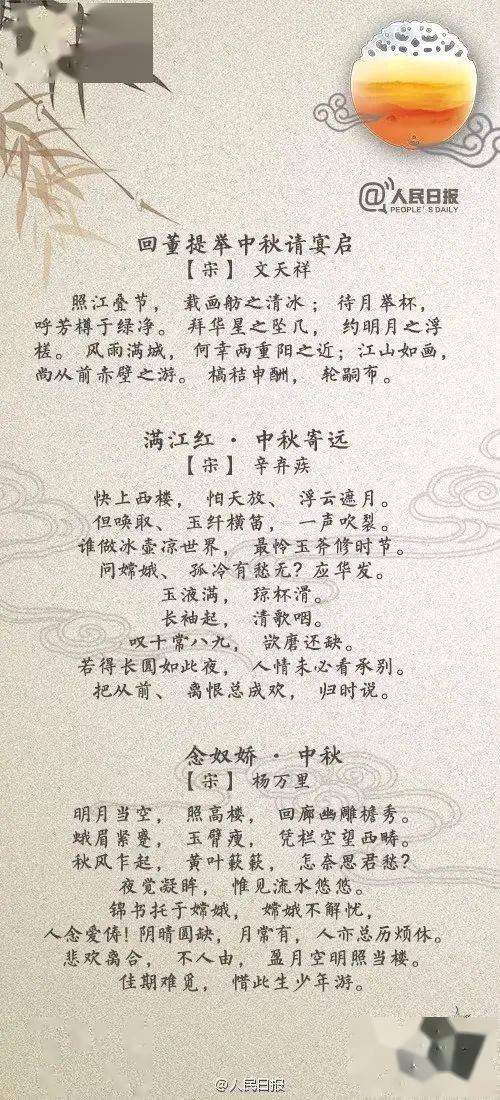 @人民日报
PEOPLE'S DAILY
回董提举中秋请宴启
【宋】 文天祥
照江叠节, 载画舫之清冰; 待月举杯,
呼芳樽于绿净。 拜华星之坠几, 约明月之浮
槎。 风雨满城, 何幸两重阳之近; 江山如画,
尚从前赤壁之游。 槁秸申酬, 轮嗣布。
满江红·中秋寄远
【宋】 辛弃疾
快上西楼, 怕天放、 浮云遮月。
但唤取、 玉纤横笛, 一声吹裂。
谁做冰壶凉世界, 最怜玉斧修时节。
问嫦娥、 孤冷有愁无? 应华发。
玉液满, 琼杯滑。
长袖起, 清歌咽。
叹十常八九, 欲磨还缺。
若得长圆如此夜, 人情未必看承别。
把从前、 离恨总成欢, 归时说。
念奴娇·中秋
【宋】 杨万里
明月当空, 照高楼, 回廊幽雕檐秀。
蛾眉紧蹙, 玉臂瘦, 凭栏空望西畴。
秋风乍起, 黄叶簌簌, 怎奈思君愁?
夜觉凝眸, 惟见流水悠悠。
锦书托于嫦娥, 嫦娥不解忧,
人念爱俦! 阴晴圆缺, 月常有, 人亦总历烦休。
悲欢离合, 不人由, 盈月空明照当楼。
佳期难觅, 惜此生少年游。
@人民日报